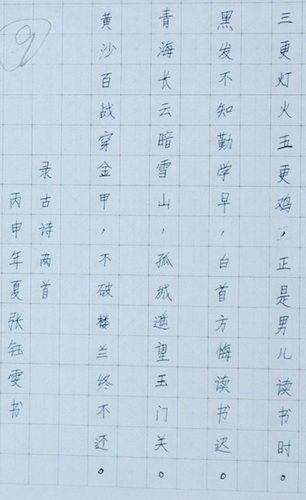 三更灯火五更鸡，正是男儿读书时。
黑发不知勤学早，白首方悔读书迟。
青海长云暗雪山，孤城遥望玉门关。
黄沙百战穿金甲，不破楼兰终不还。
录古诗两首
丙申年夏张钰雯书